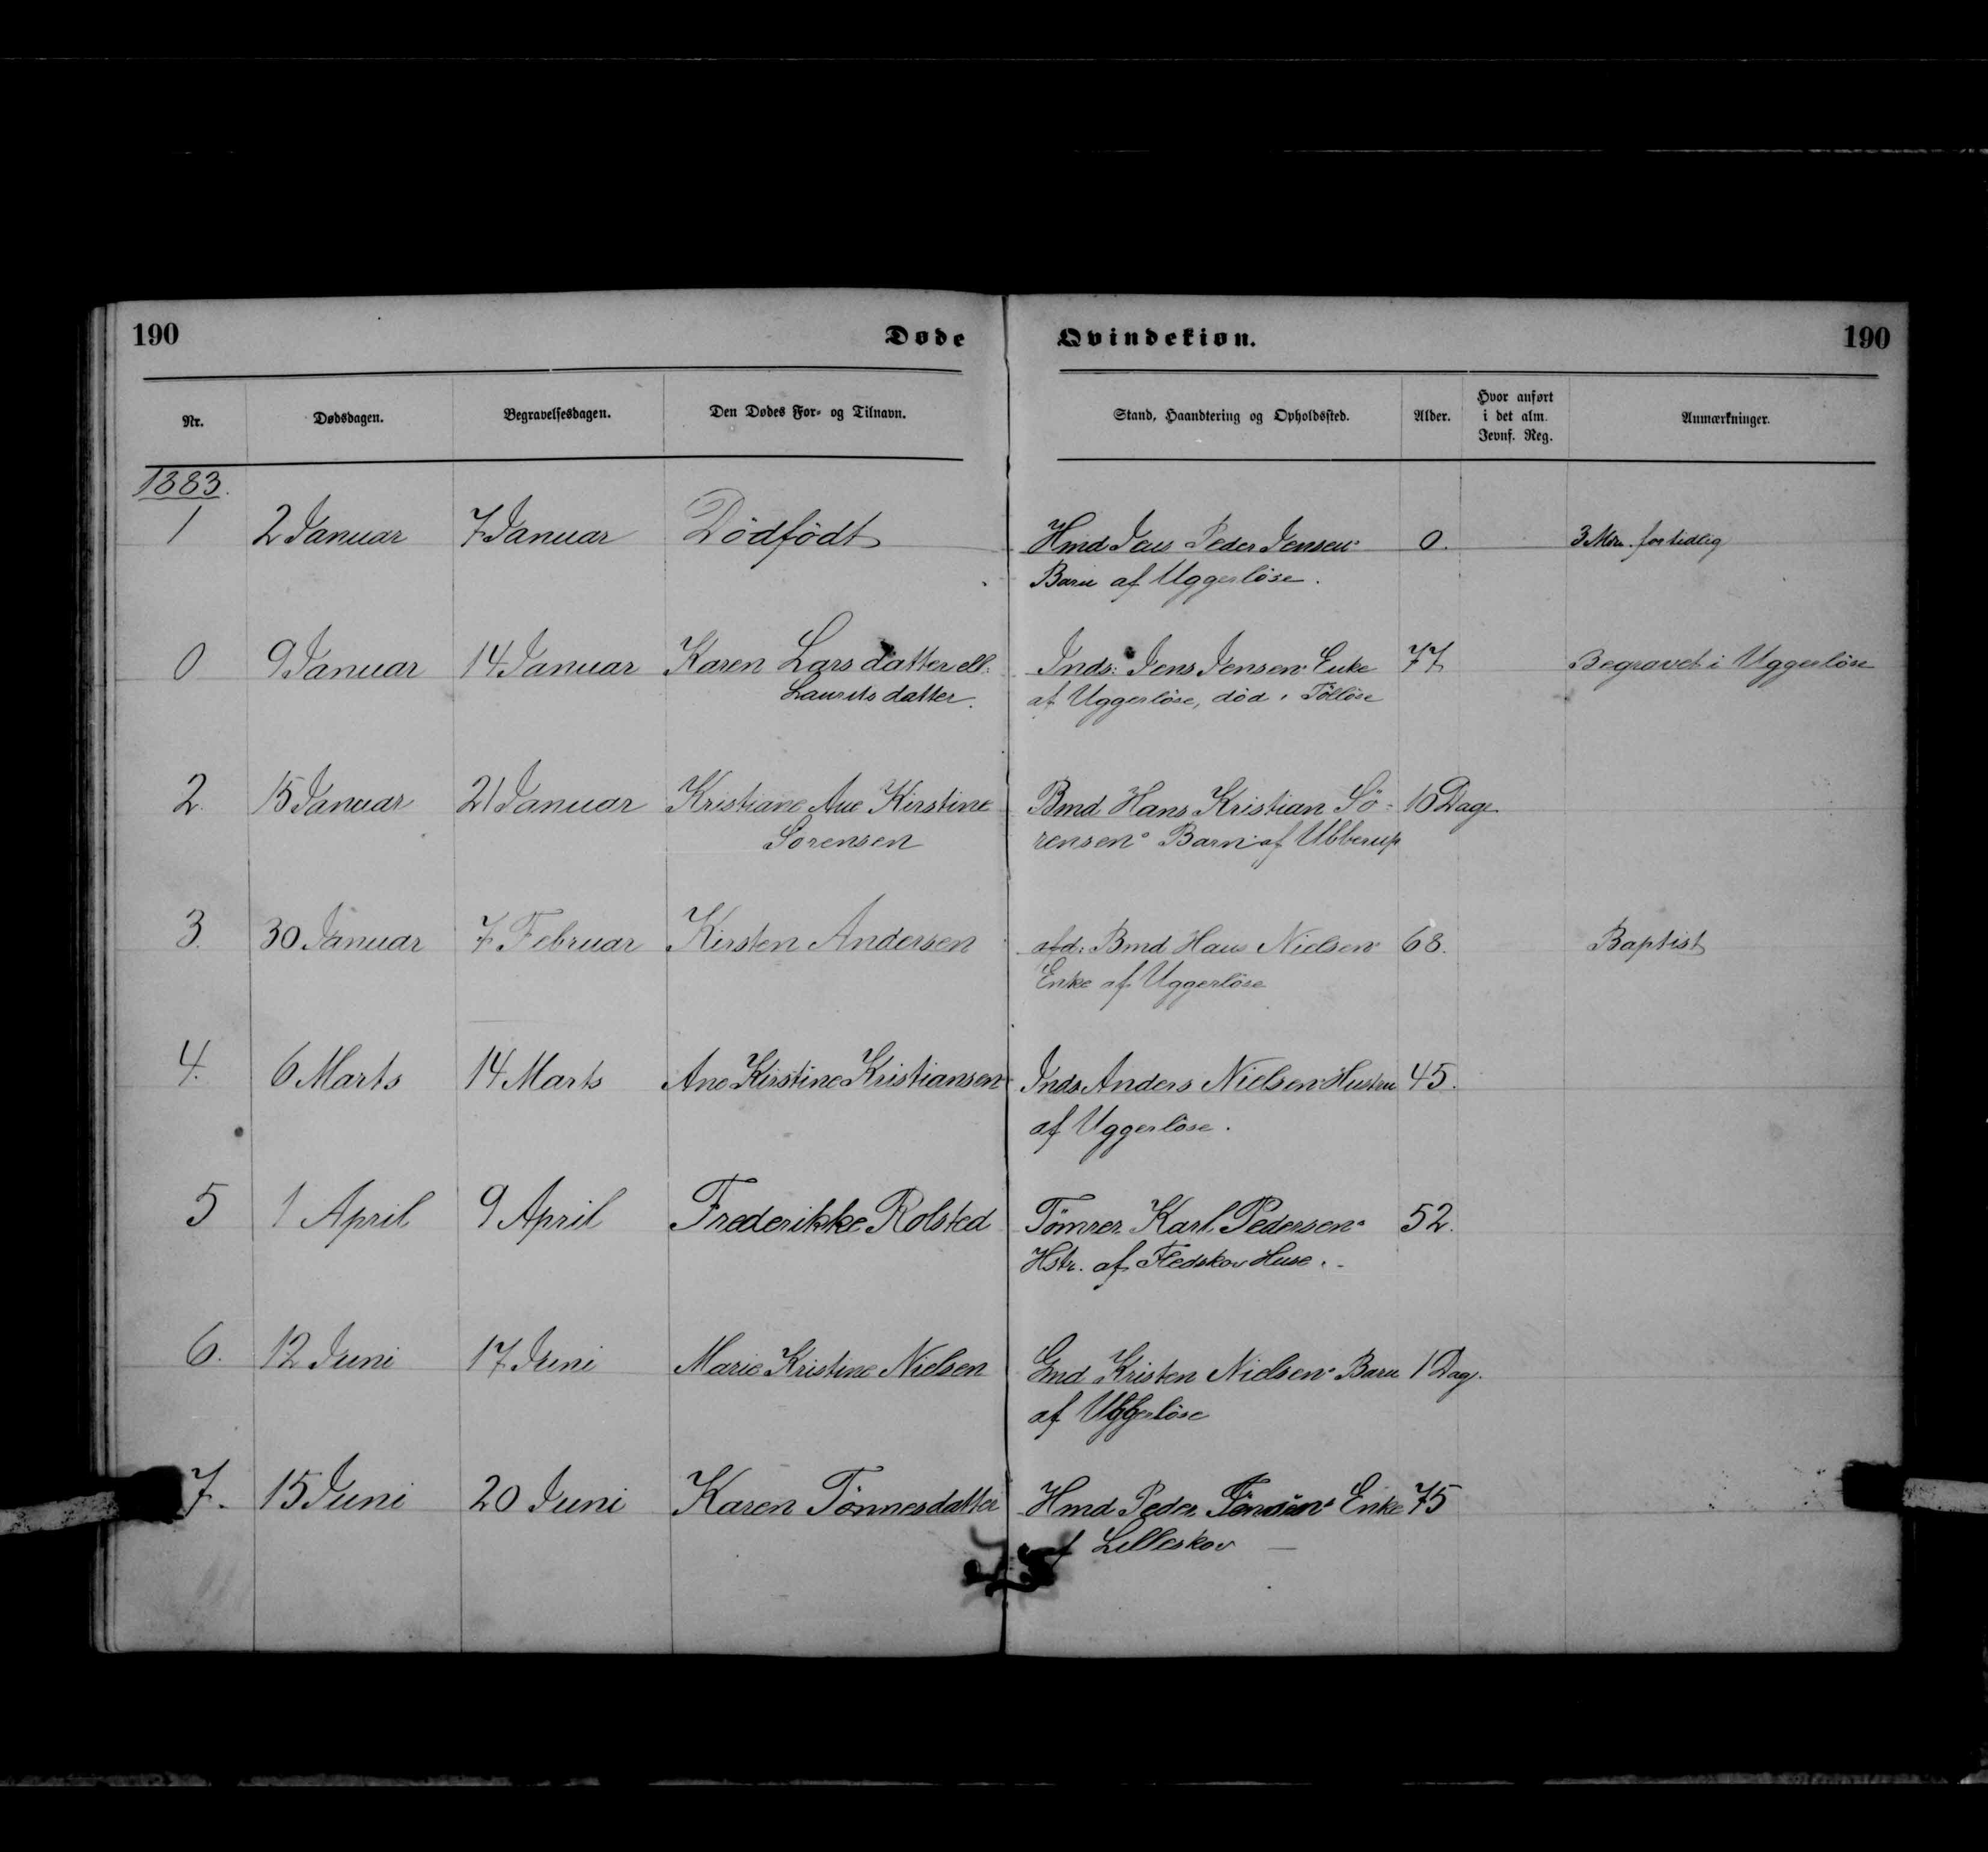 190 Døde Qvindekiøn. 190
Nr. Dødsdagen. Begravelsesdagen. Den Dødes For- og Tilnavn. Stand, Haandtering og Opholdssted. Alder. Hvor anført i det alm. Jevnf. Reg. Anmærkninger.
1883.
1 2 Januar 7 Januar Dödfödt Hmd Jens Peder Jensens 0. 3 Mdr. for tidlig
Barn af Uggerlöse.
0 9 Januar 14 Januar Karen Larsdatter ell: Inds: Jens Jensens Enke 77 Begravet i Uggerlöse
Lauritsdatter. af Uggerlöse, död i Tölløse
2. 15 Januar 21 Januar Kristiane Ane Kirstine Bmd Hans Kristian Sö- 10 Dage
Sorensen rensens Barn af Ubberup
3. 30 Januar 7 Februar Kirsten Andersen afd: Bmd Hans Nielsens 68. Baptist
Enke af Uggerlöse
4. 6 Marts 14 Marts Ane Kirstine Kristiansen Inds. Anders Nielsens Hustru 45.
af Uggerlöse.
5 1 April 9 April Frederikke Rolsted Tömrer Karl Pedersens 52.
Hstr. af Fledskov Huse.
6. 12 Juni 17 Juni Marie Kristine Nielsen Gmd Kristen Nielsens Barn 1 Dag.
af Uggerlöse
7. 15 Juni 20 Juni Karen Tönnesdatter Hmd Peder Enke 75
af Lilleskov